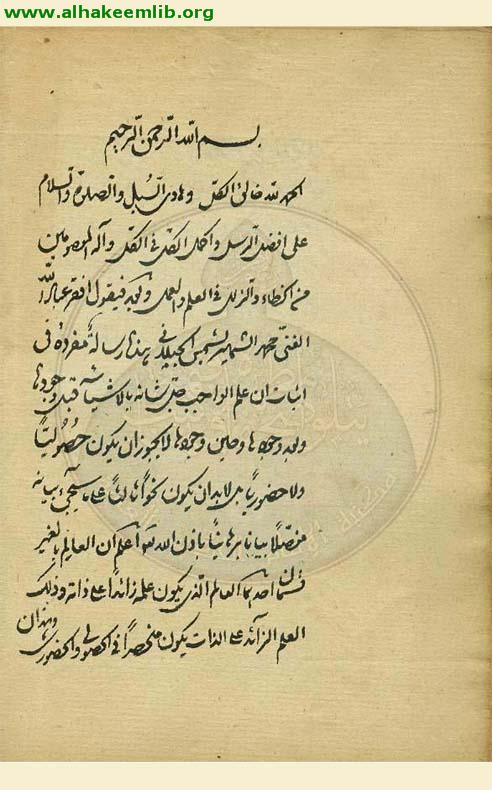 www.alhakeemlib.org
بسم الله الرحمن الرحيم
الحمد لله خالق الكل وهادي السبل والصلوة والسلام
على افضل الرسل واكمل الكل في الكل وآله المعصومين
من الخطاء والزلل في العلم والعمل وبعد فيقول افقر عباد الله
الغني محمد الشهير بشمس الجيلاني هذه رسالة مفردة في
اثبات ان علم الواجب جل شانه بالاشياء قبل وجودها
وبعد وجودها وحين وجودها لا يجوز ان يكون حصوليا
ولا حضوريا بل لا بد ان يكون نحوا ثالثا على ما سيجيء بيانه
مفصلا بيانا برهانيا باذن الله تعالى اعلم ان العالم بالغير
قسمان احدهما العالم الذي يكون علمه زائدا على ذاته وذلك
العلم الزائد على الذات يكون منحصرا في الحصولي والحضوري وهذان